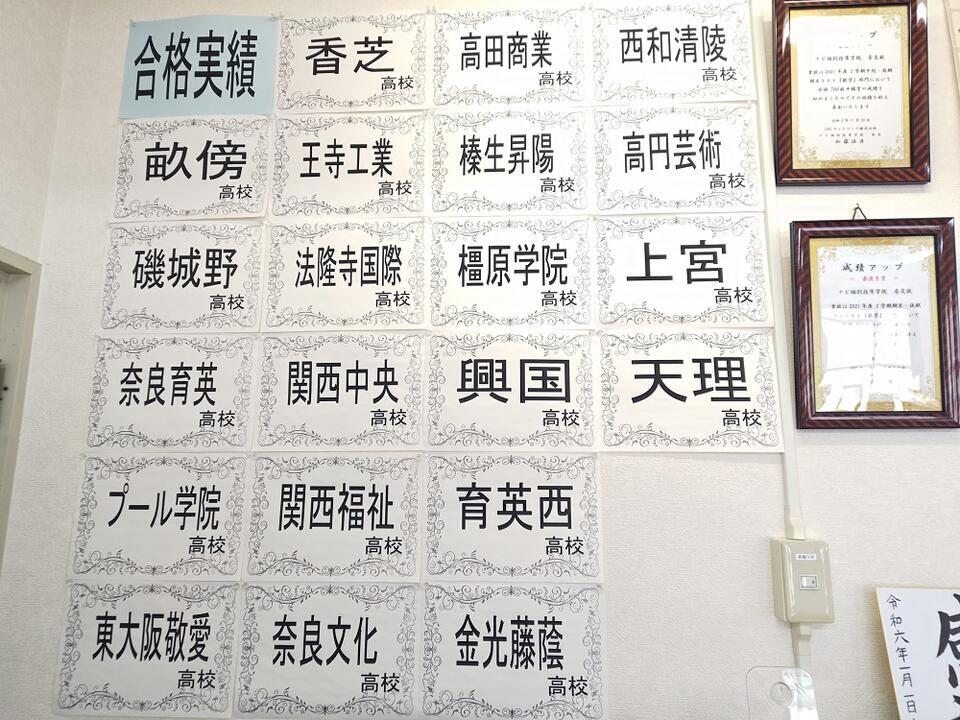 合格実績
香芝
高校
高田商業
高校
西和清陵
高校
畝傍
高校
王寺工業
高校
榛生昇陽
高校
高円芸術
高校
磯城野
高校
法隆寺国際
高校
橿原学院
高校
上宮
高校
奈良育英
高校
関西中央
高校
興国
高校
天理
高校
プール学院
高校
関西福祉
高校
育英西
高校
東大阪敬愛
高校
奈良文化
高校
金光藤蔭
高校
ップ
ナビ個別指導学院
成績アップ
ナビ個別指導学院
令和六年一月一日